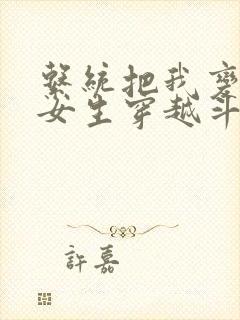 系統把我變
女生穿越斗
許嘉